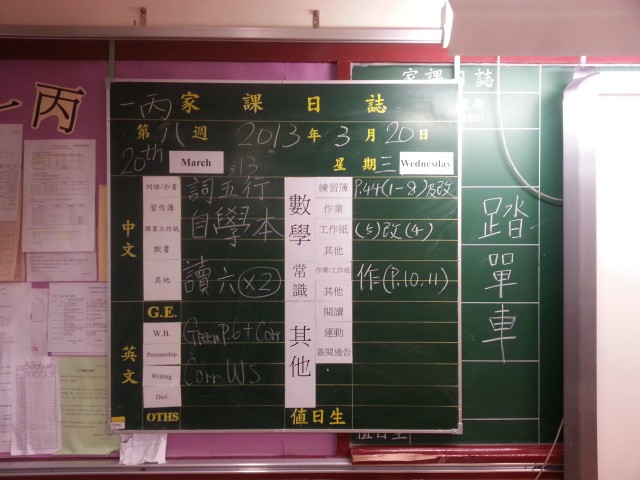 一丙
家課日誌
一丙 家課日誌
第八週 2013年3月20日
20th March, 13 星期三 Wednesday
中文
詞語/抄書 詞五行
習作簿 自學本
課室工作紙
默書
其他 讀六 ×2
G.E.
英文
W.B. Green p.6 + Corr
Penmanship
Writing Corr WS
Dict.
OTHS
數學
練習簿 P.44(1-8)及改
作業
工作紙 (5)改(4)
其他
常識
作業/工作紙 作(P.10,11)
其他
其他
閱讀
運動
簽閱通告
值日生
踏單車
值日生